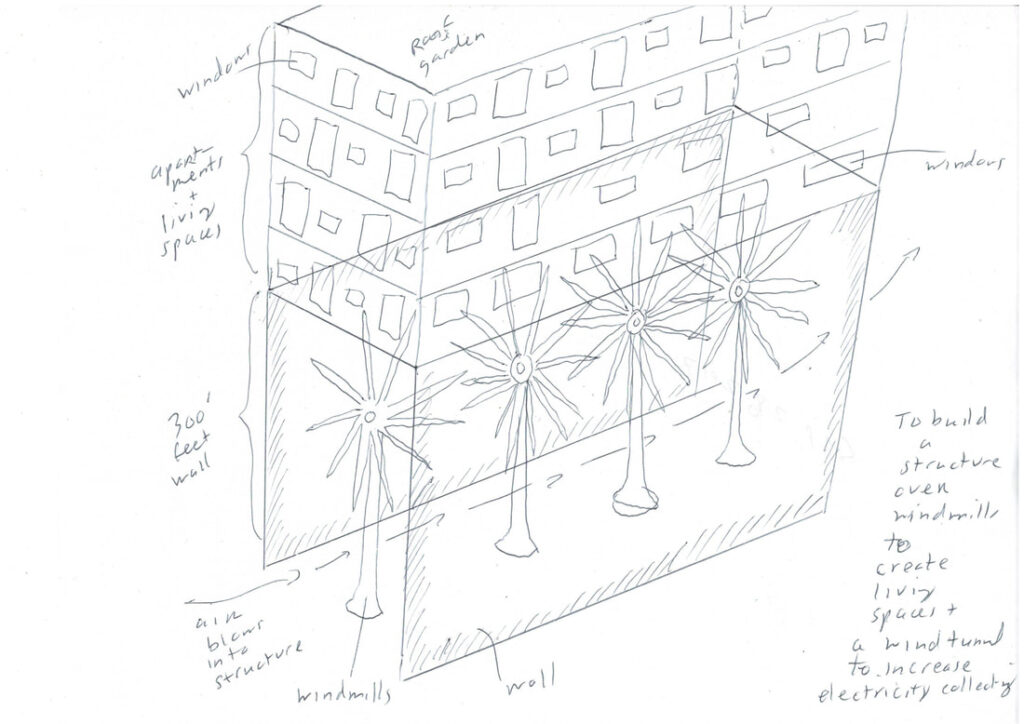 Roof
garden
windows
apart-
ments
+
living
spaces
windows
300'
feet
wall
To build
a
structure
over
windmills
to
create
living
spaces +
a wind tunnel
to increase
electricity collecting
air
blows
into
structure
windmills
wall